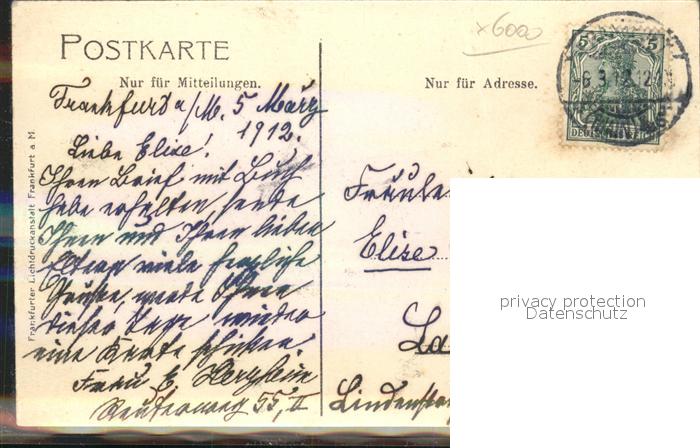 x6000
POSTKARTE
Nur für Mitteilungen.
Nur für Adresse.
5 5
DEUTSCHES REICH
Frankfurt a/M. 5 März
1912.
Liebe Elise!
Ihren Brief mit Buch
habe erhalten, sende
Ihnen und Ihren lieben
Eltern viele herzliche
Grüße, werde Ihnen
dieser Tage wieder
eine Karte schicken.
Frau E.
Reuterweg 55, II
Elise
La
privacy protection
Datenschutz
Frankfurter Lichtdruckanstalt Frankfurt a M.